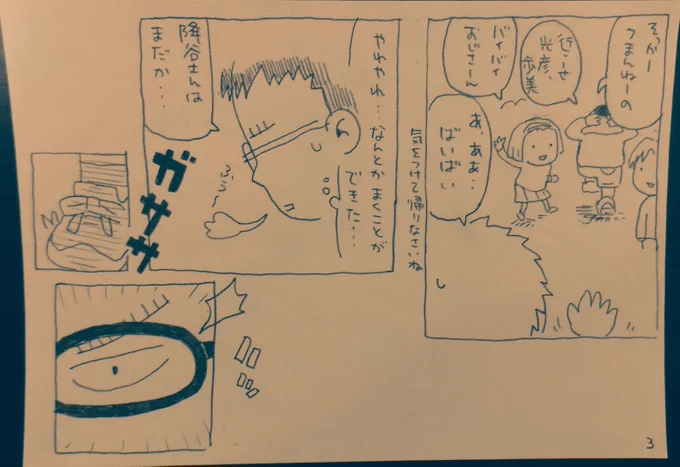 そっかー
つまんねーの
行こーぜ
光彦、
歩美
バイバイ
おじさーん
あ、ああ‥
ばいばい
気をつけて帰りなさいね
やれやれ…なんとかまくことが
できた…
ふぅ〜
降谷さんは
まだか…
ガササ
3